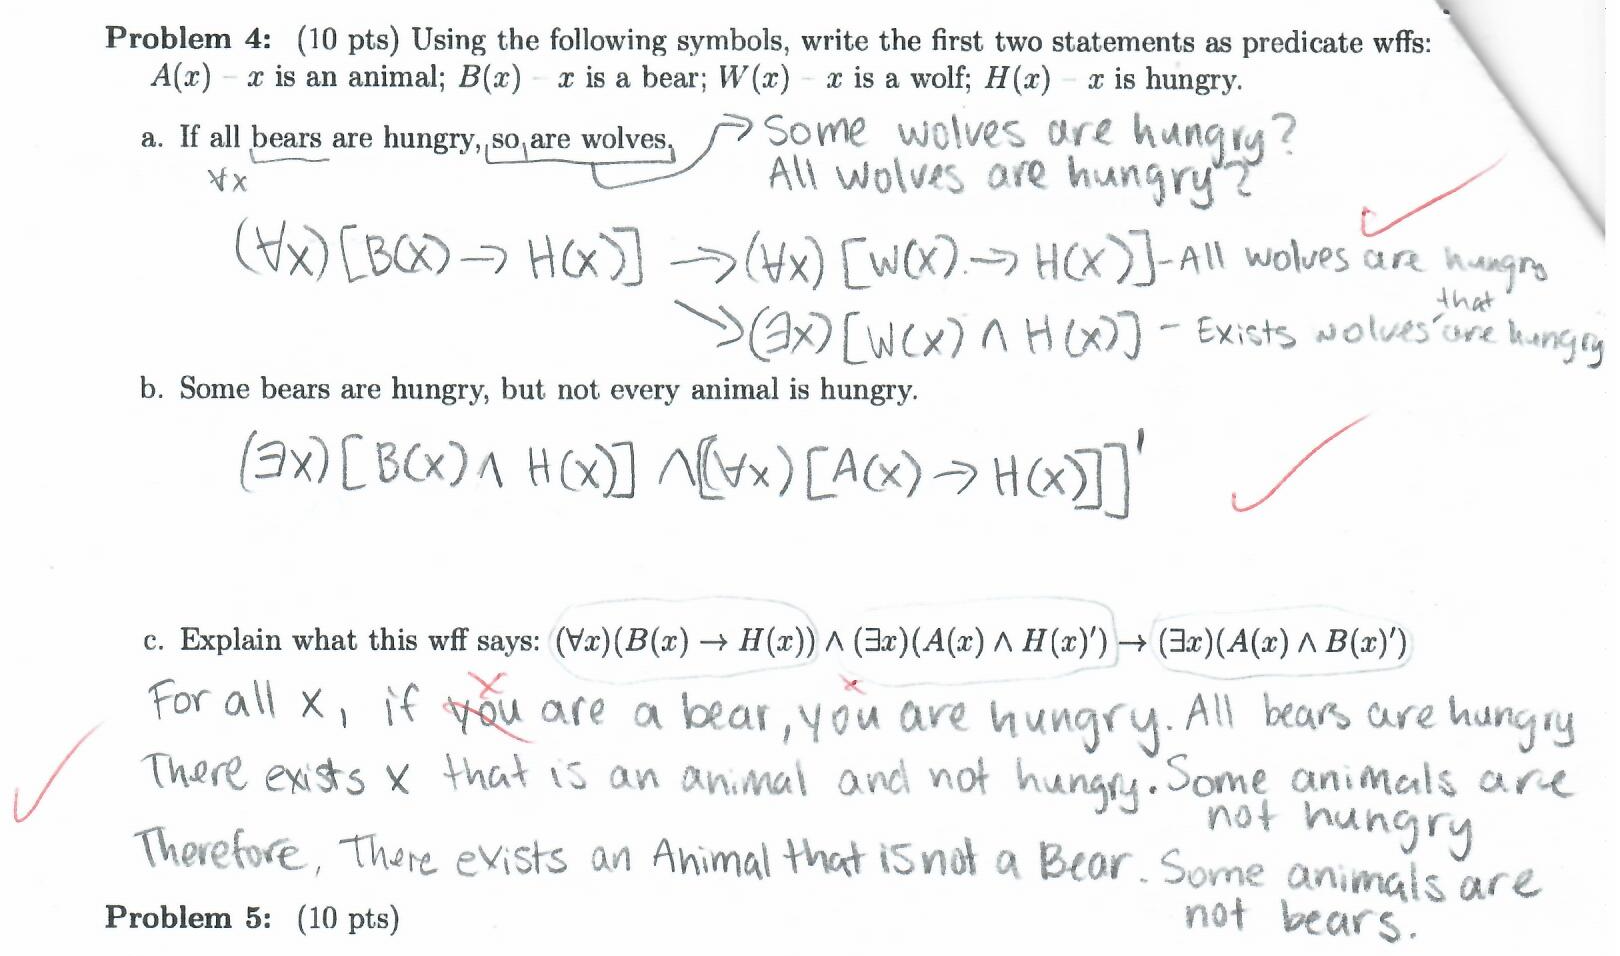 Problem 4: (10 pts) Using the following symbols, write the first two statements as predicate wffs:
A(x) – x is an animal; B(x) – x is a bear; W(x) – x is a wolf; H(x) – x is hungry.
a. If all bears are hungry, so are wolves.
∀x
→ Some wolves are hungry?
All wolves are hungry?
(∀x)[B(x) → H(x)] → (∀x) [W(x) → H(x)] - All wolves are hungry
→ (∃x) [W(x) ∧ H(x)] - Exists wolves that are hungry
b. Some bears are hungry, but not every animal is hungry.
(∃x)[B(x) ∧ H(x)] ∧ [(∀x)[A(x) → H(x)]]'
c. Explain what this wff says: (∀x)(B(x) → H(x)) ∧ (∃x)(A(x) ∧ H(x)') → (∃x)(A(x) ∧ B(x)')
x x
For all x, if you are a bear, you are hungry. All bears are hungry
There exists x that is an animal and not hungry. Some animals are
not hungry
Therefore, There exists an Animal that is not a Bear. Some animals are
not bears.
Problem 5: (10 pts)